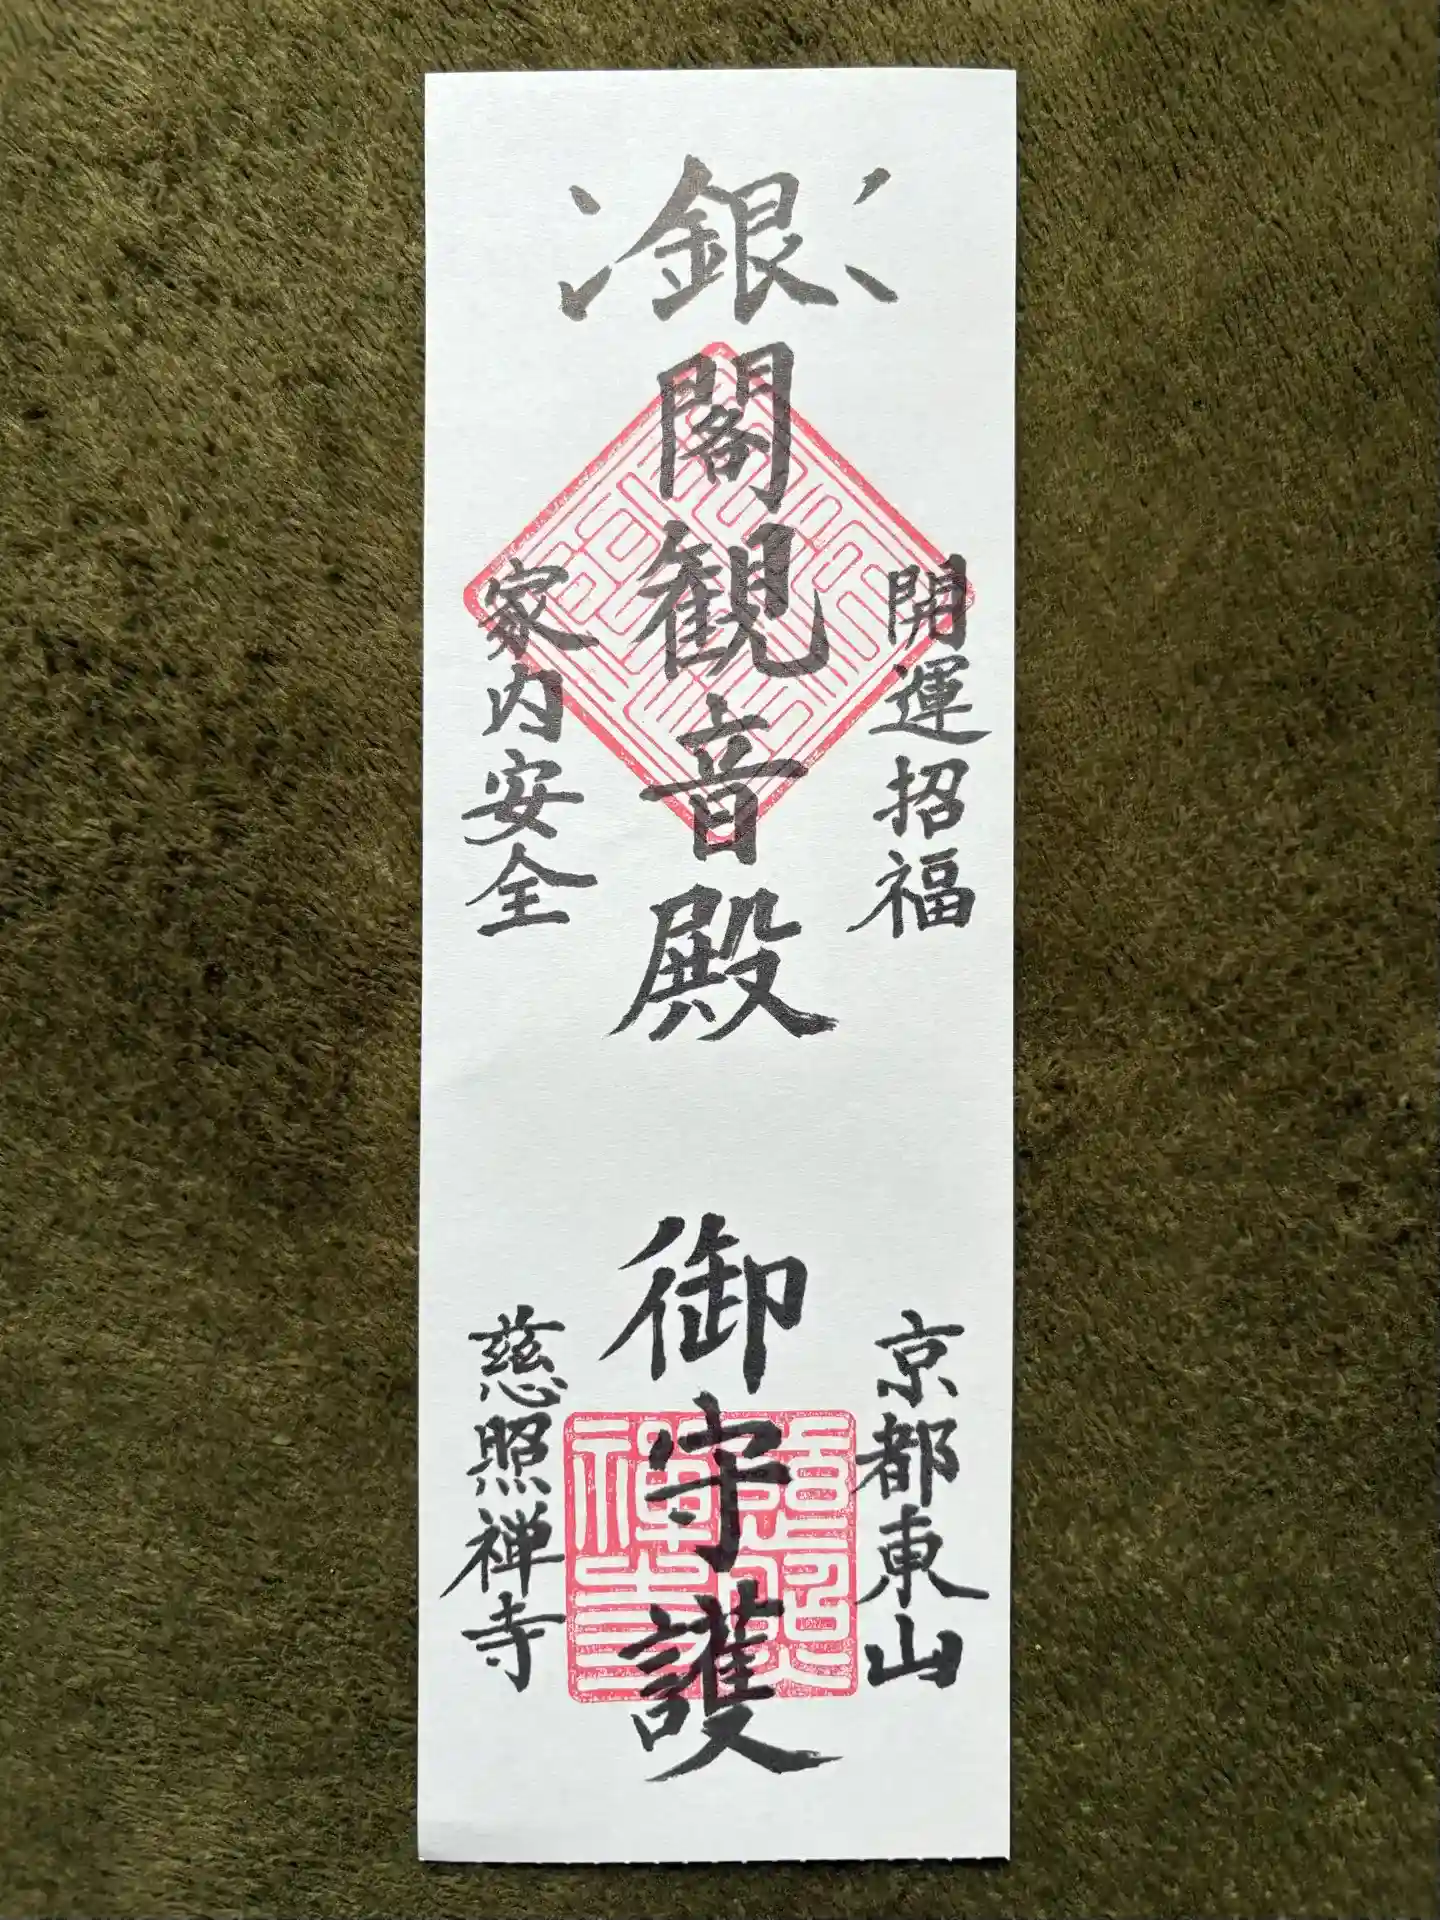 銀閣観音殿 御守護
開運招福
家内安全
京都東山
慈照禅寺
慈照禅寺